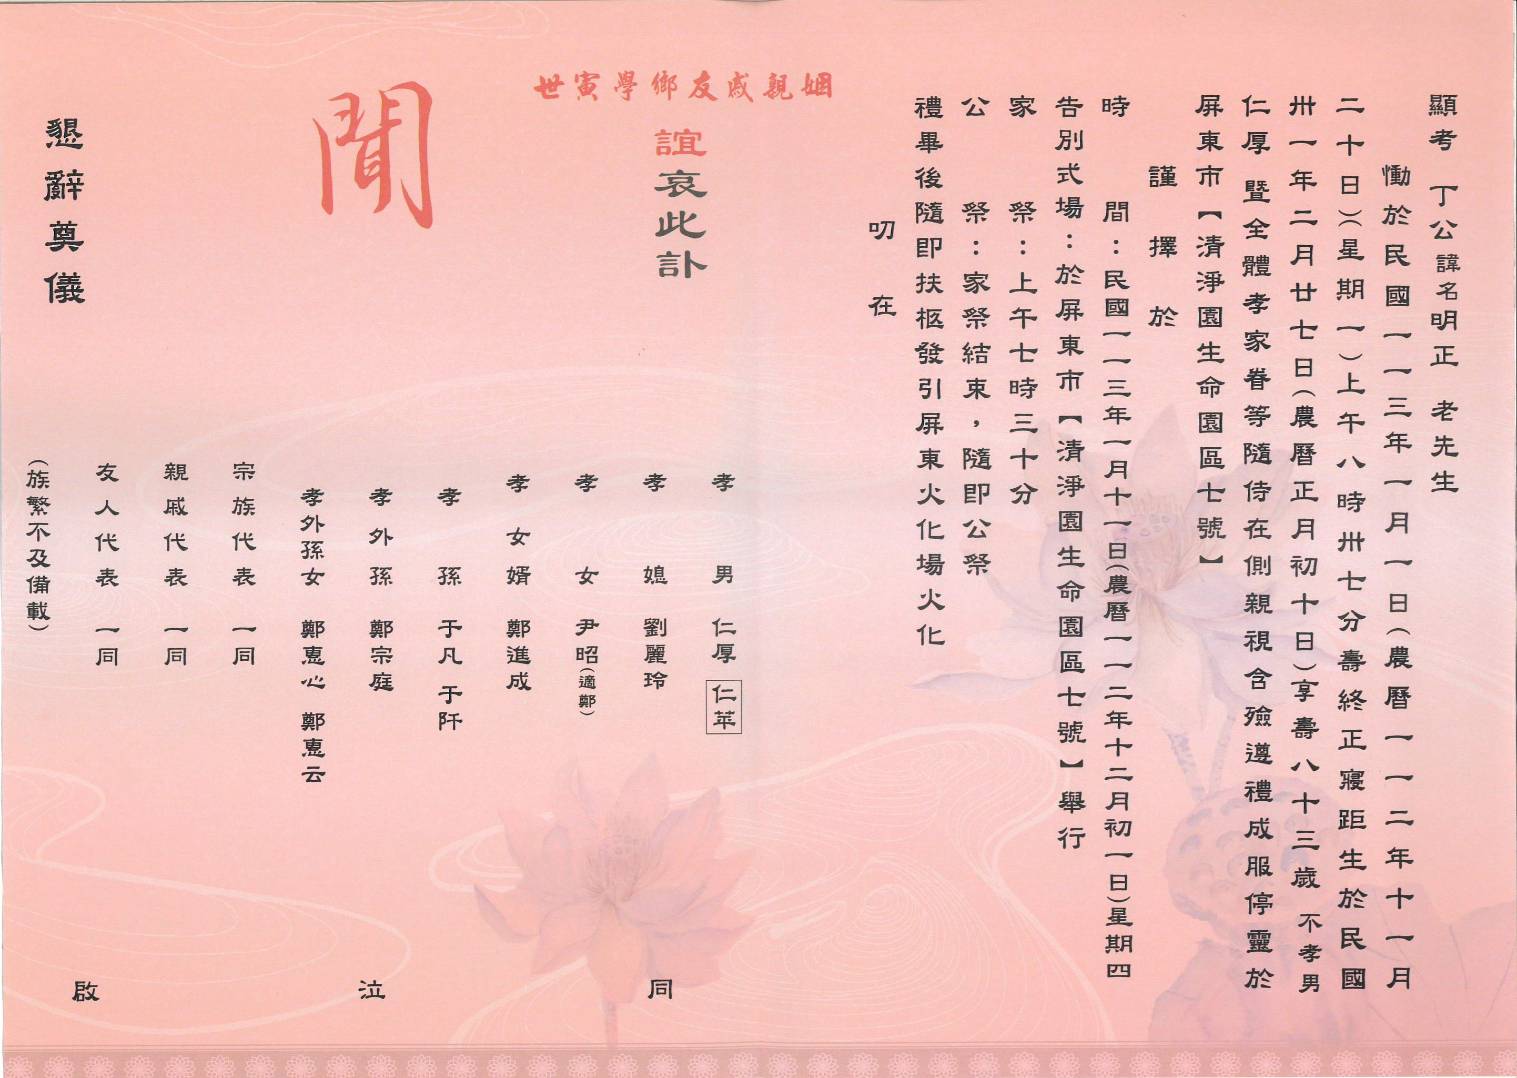 顯考 丁公諱名明正 老先生
慟於民國一一三年一月一日(農曆一一二年十一月
二十日)(星期一)上午八時卅七分壽終正寢距生於民國
卅一年二月廿七日(農曆正月初十日)享壽八十三歲 不孝男
仁厚 暨全體孝家眷等隨侍在側親視含殮遵禮成服停靈於
屏東市【清淨園生命園區七號】
謹擇於
時間：民國一一三年一月十一日(農曆一一二年十二月初一日)星期四
告別式場：於屏東市【清淨園生命園區七號】舉行
家祭：上午七時三十分
公祭：家祭結束，隨即公祭
禮畢後隨即扶柩發引屏東火化場火化
叨在
姻親戚友鄉學寅世
誼哀此訃
聞
孝男 仁厚 仁苹
孝媳 劉麗玲
孝女 尹昭(適鄭)
孝女婿 鄭進成
孝孫 于凡 于阡
孝外孫 鄭宗庭
孝外孫女 鄭惠心 鄭惠云
宗族代表 一同
親戚代表 一同
友人代表 一同
(族繁不及備載)
同泣啟
懇辭奠儀